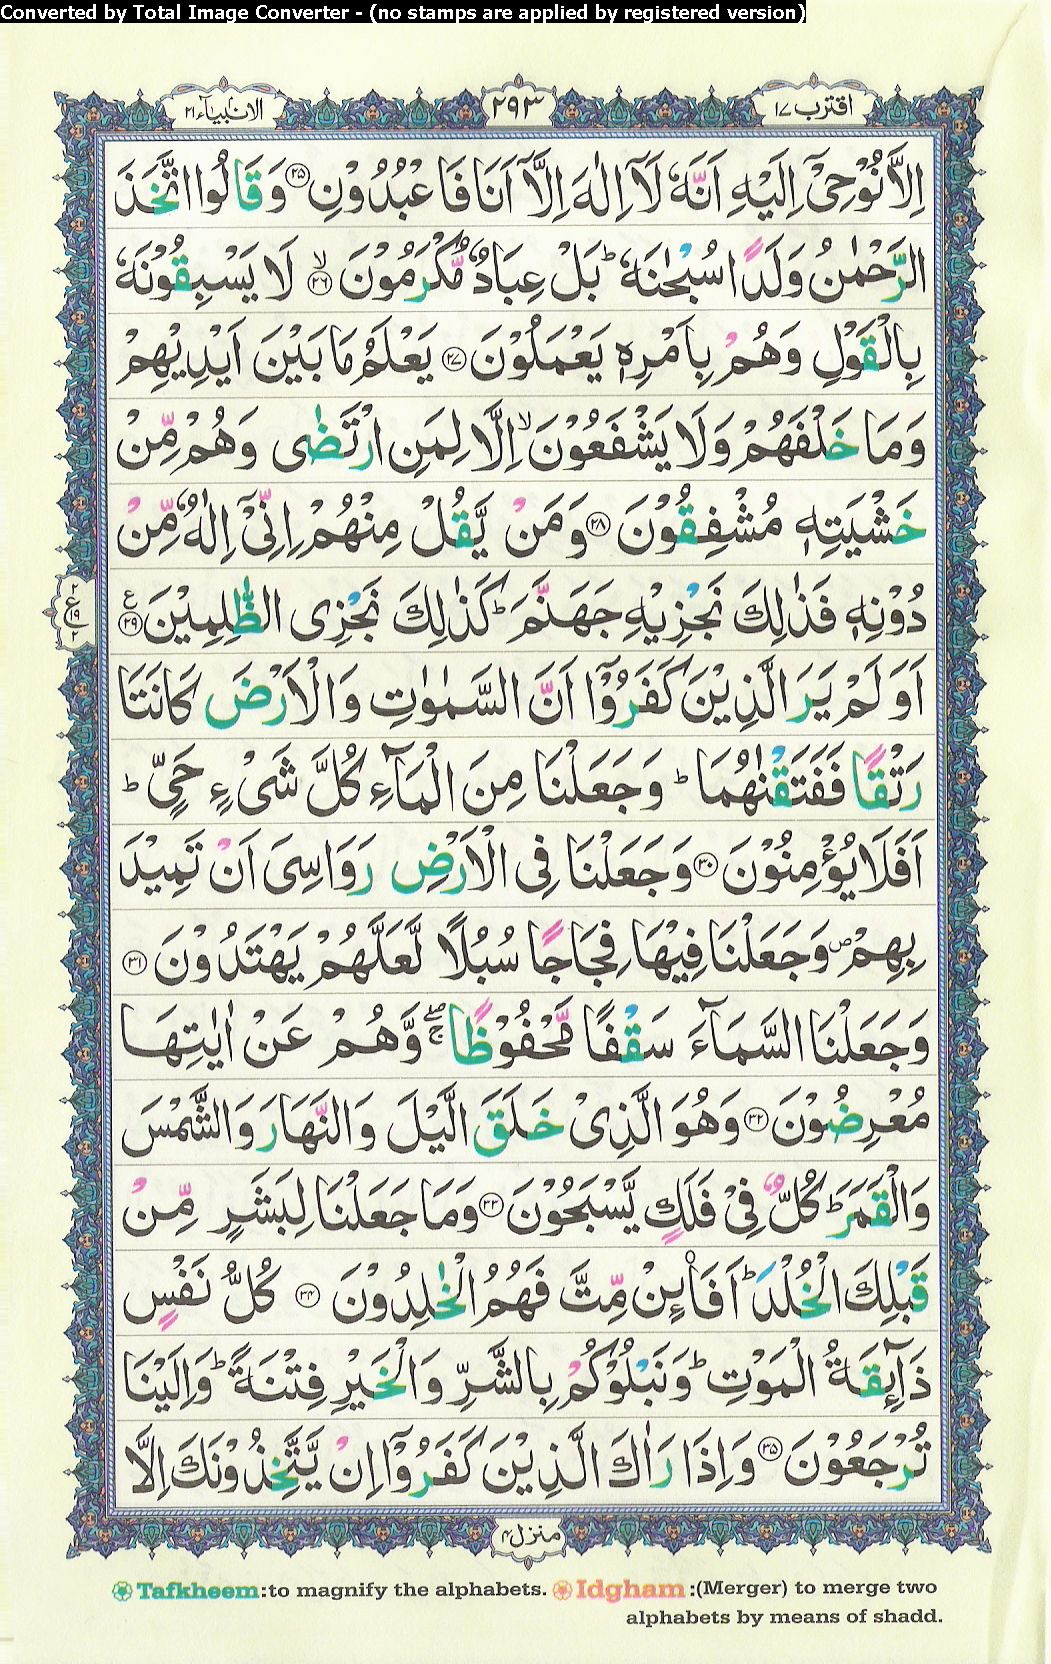 Converted by Total Image Converter - (no stamps are applied by registered version)
اقترب ١٧
٢٩٣
الانبیآء ٢١
اِلَّا نُوْحِیْۤ اِلَیْهِ اَنَّهٗ لَاۤ اِلٰهَ اِلَّاۤ اَنَا فَاعْبُدُوْنِ ﴿۲۵﴾ وَ قَالُوا اتَّخَذَ
الرَّحْمٰنُ وَلَدًا سُبْحٰنَهٗ ؕ بَلْ عِبَادٌ مُّكْرَمُوْنَ ﴿ۙ۲۶﴾ لَا یَسْبِقُوْنَهٗ
بِالْقَوْلِ وَ هُمْ بِاَمْرِهٖ یَعْمَلُوْنَ ﴿۲۷﴾ یَعْلَمُ مَا بَیْنَ اَیْدِیْهِمْ
وَ مَا خَلْفَهُمْ وَ لَا یَشْفَعُوْنَ ۙ اِلَّا لِمَنِ ارْتَضٰی وَ هُمْ مِّنْ
خَشْیَتِهٖ مُشْفِقُوْنَ ﴿۲۸﴾ وَ مَنْ یَّقُلْ مِنْهُمْ اِنِّیْۤ اِلٰهٌ مِّنْ
دُوْنِهٖ فَذٰلِكَ نَجْزِیْهِ جَهَنَّمَ ؕ كَذٰلِكَ نَجْزِی الظّٰلِمِیْنَ ﴿۲۹﴾ ع
٢
ع
١٩
٢
اَوَ لَمْ یَرَ الَّذِیْنَ كَفَرُوْۤا اَنَّ السَّمٰوٰتِ وَ الْاَرْضَ كَانَتَا
رَتْقًا فَفَتَقْنٰهُمَا ؕ وَ جَعَلْنَا مِنَ الْمَآءِ كُلَّ شَیْءٍ حَیٍّ ؕ
اَفَلَا یُؤْمِنُوْنَ ﴿۳۰﴾ وَ جَعَلْنَا فِی الْاَرْضِ رَوَاسِیَ اَنْ تَمِیْدَ
بِهِمْ ۪ وَ جَعَلْنَا فِیْهَا فِجَاجًا سُبُلًا لَّعَلَّهُمْ یَهْتَدُوْنَ ﴿۳۱﴾
وَ جَعَلْنَا السَّمَآءَ سَقْفًا مَّحْفُوْظًا ۚۖ وَّ هُمْ عَنْ اٰیٰتِهَا
مُعْرِضُوْنَ ﴿۳۲﴾ وَ هُوَ الَّذِیْ خَلَقَ الَّیْلَ وَ النَّهَارَ وَ الشَّمْسَ
وَ الْقَمَرَ ؕ كُلٌّ فِیْ فَلَكٍ یَّسْبَحُوْنَ ﴿۳۳﴾ وَ مَا جَعَلْنَا لِبَشَرٍ مِّنْ
قَبْلِكَ الْخُلْدَ ؕ اَفَا۠ئِنْ مِّتَّ فَهُمُ الْخٰلِدُوْنَ ﴿۳۴﴾ كُلُّ نَفْسٍ
ذَآىِٕقَةُ الْمَوْتِ ؕ وَ نَبْلُوْكُمْ بِالشَّرِّ وَ الْخَیْرِ فِتْنَةً ؕ وَ اِلَیْنَا
تُرْجَعُوْنَ ﴿۳۵﴾ وَ اِذَا رَاٰكَ الَّذِیْنَ كَفَرُوْۤا اِنْ یَّتَّخِذُوْنَكَ اِلَّا
منزل ۴
Tafkheem:to magnify the alphabets. Idgham :(Merger) to merge two
alphabets by means of shadd.